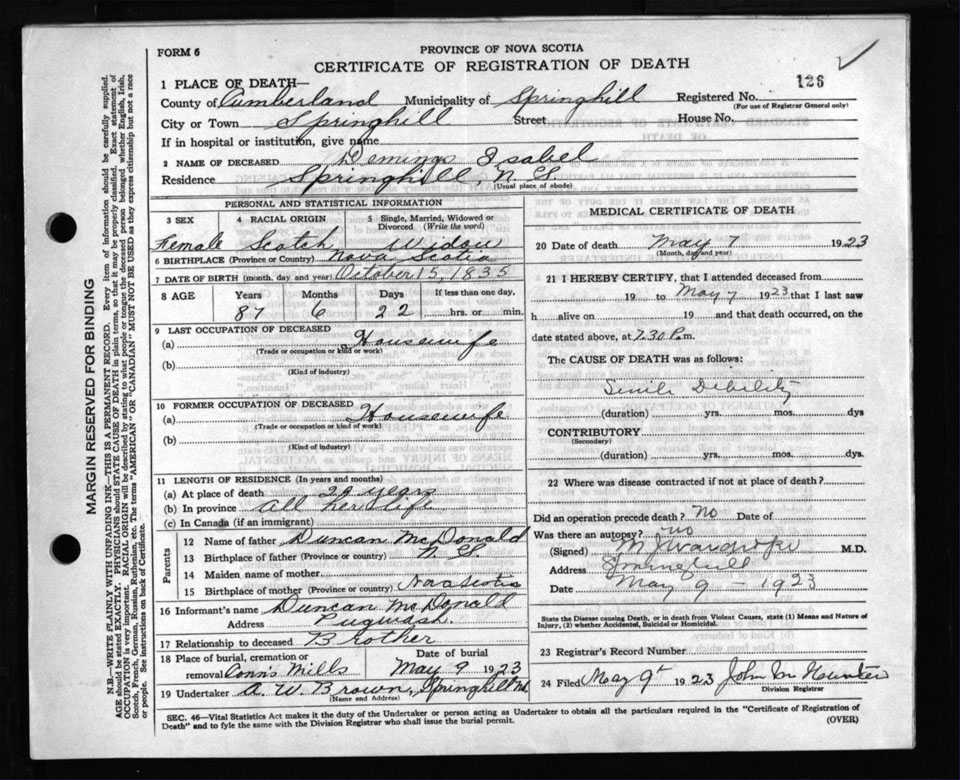 FORM 6
PROVINCE OF NOVA SCOTIA
CERTIFICATE OF REGISTRATION OF DEATH
126
1 PLACE OF DEATH—
County of Cumberland Municipality of Springhill Registered No.
(For use of Registrar General only)
City or Town Springhill Street House No.
If in hospital or institution, give name
2 NAME OF DECEASED Demings Isabel
Residence Springhill, N. S.
(Usual place of abode)
PERSONAL AND STATISTICAL INFORMATION
3 SEX 4 RACIAL ORIGIN 5 Single, Married, Widowed or Divorced (Write the word)
Female Scotch Widow
6 BIRTHPLACE (Province or Country) Nova Scotia
7 DATE OF BIRTH (month, day and year) October 15, 1835
8 AGE Years Months Days If less than one day,
87 6 22 hrs. or min.
9 LAST OCCUPATION OF DECEASED
(a) Housewife
(Trade or occupation or kind of work)
(b)
(Kind of industry)
10 FORMER OCCUPATION OF DECEASED
(a) Housewife
(Trade or occupation or kind of work)
(b)
(Kind of industry)
11 LENGTH OF RESIDENCE (In years and months)
(a) At place of death 24 years
(b) In province All her life
(c) In Canada (if an immigrant)
Parents
12 Name of father Duncan McDonald
13 Birthplace of father (Province or country) N. S.
14 Maiden name of mother
15 Birthplace of mother (Province or country) Nova Scotia
16 Informant's name Duncan McDonald
Address Pugwash.
17 Relationship to deceased Brother
18 Place of burial, cremation or removal Conns Mills Date of burial May 9 1923
19 Undertaker A. W. Brown, Springhill
(Name and Address)
MEDICAL CERTIFICATE OF DEATH
20 Date of death May 7 1923
(Month, day and year)
21 I HEREBY CERTIFY, that I attended deceased from
19 to May 7 1923 that I last saw
h alive on 19 and that death occurred, on
date stated above, at 7.30 P.m.
The CAUSE OF DEATH was as follows:
Senile Debility
(duration) yrs. mos. dys
CONTRIBUTORY
(Secondary)
(duration) yrs. mos. dys.
22 Where was disease contracted if not at place of death?
Did an operation precede death? No Date of
Was there an autopsy? no
(Signed) M.D.
Address Springhill
Date May 9 - 1923
State the Disease causing Death, or in death from Violent Causes, state (1) Means and Nature of Injury, (2) whether Accidental, Suicidal or Homicidal.
23 Registrar's Record Number
24 Filed May 9th 1923 John M Hunter
Division Registrar
SEC. 46—Vital Statistics Act makes it the duty of the Undertaker or person acting as Undertaker to obtain all the particulars required in the "Certificate of Registration of Death" and to fyle the same with the Division Registrar who shall issue the burial permit.
(OVER)
MARGIN RESERVED FOR BINDING
N.B.—WRITE PLAINLY WITH UNFADING INK—THIS IS A PERMANENT RECORD. Every item of information should be carefully supplied.
AGE should be stated EXACTLY. PHYSICIANS should STATE CAUSE OF DEATH in plain terms, so that it may be properly classified. Exact statement of
OCCUPATION is very important. RACIAL ORIGIN will be described by stating to what people or tongue the deceased person belonged whether English, Irish,
Scotch, French, German, Russian, Ruthenian, etc. The terms "AMERICAN" OR "CANADIAN" MUST NOT BE USED as they express citizenship but not a race
or people. See instructions on back of Certificate.